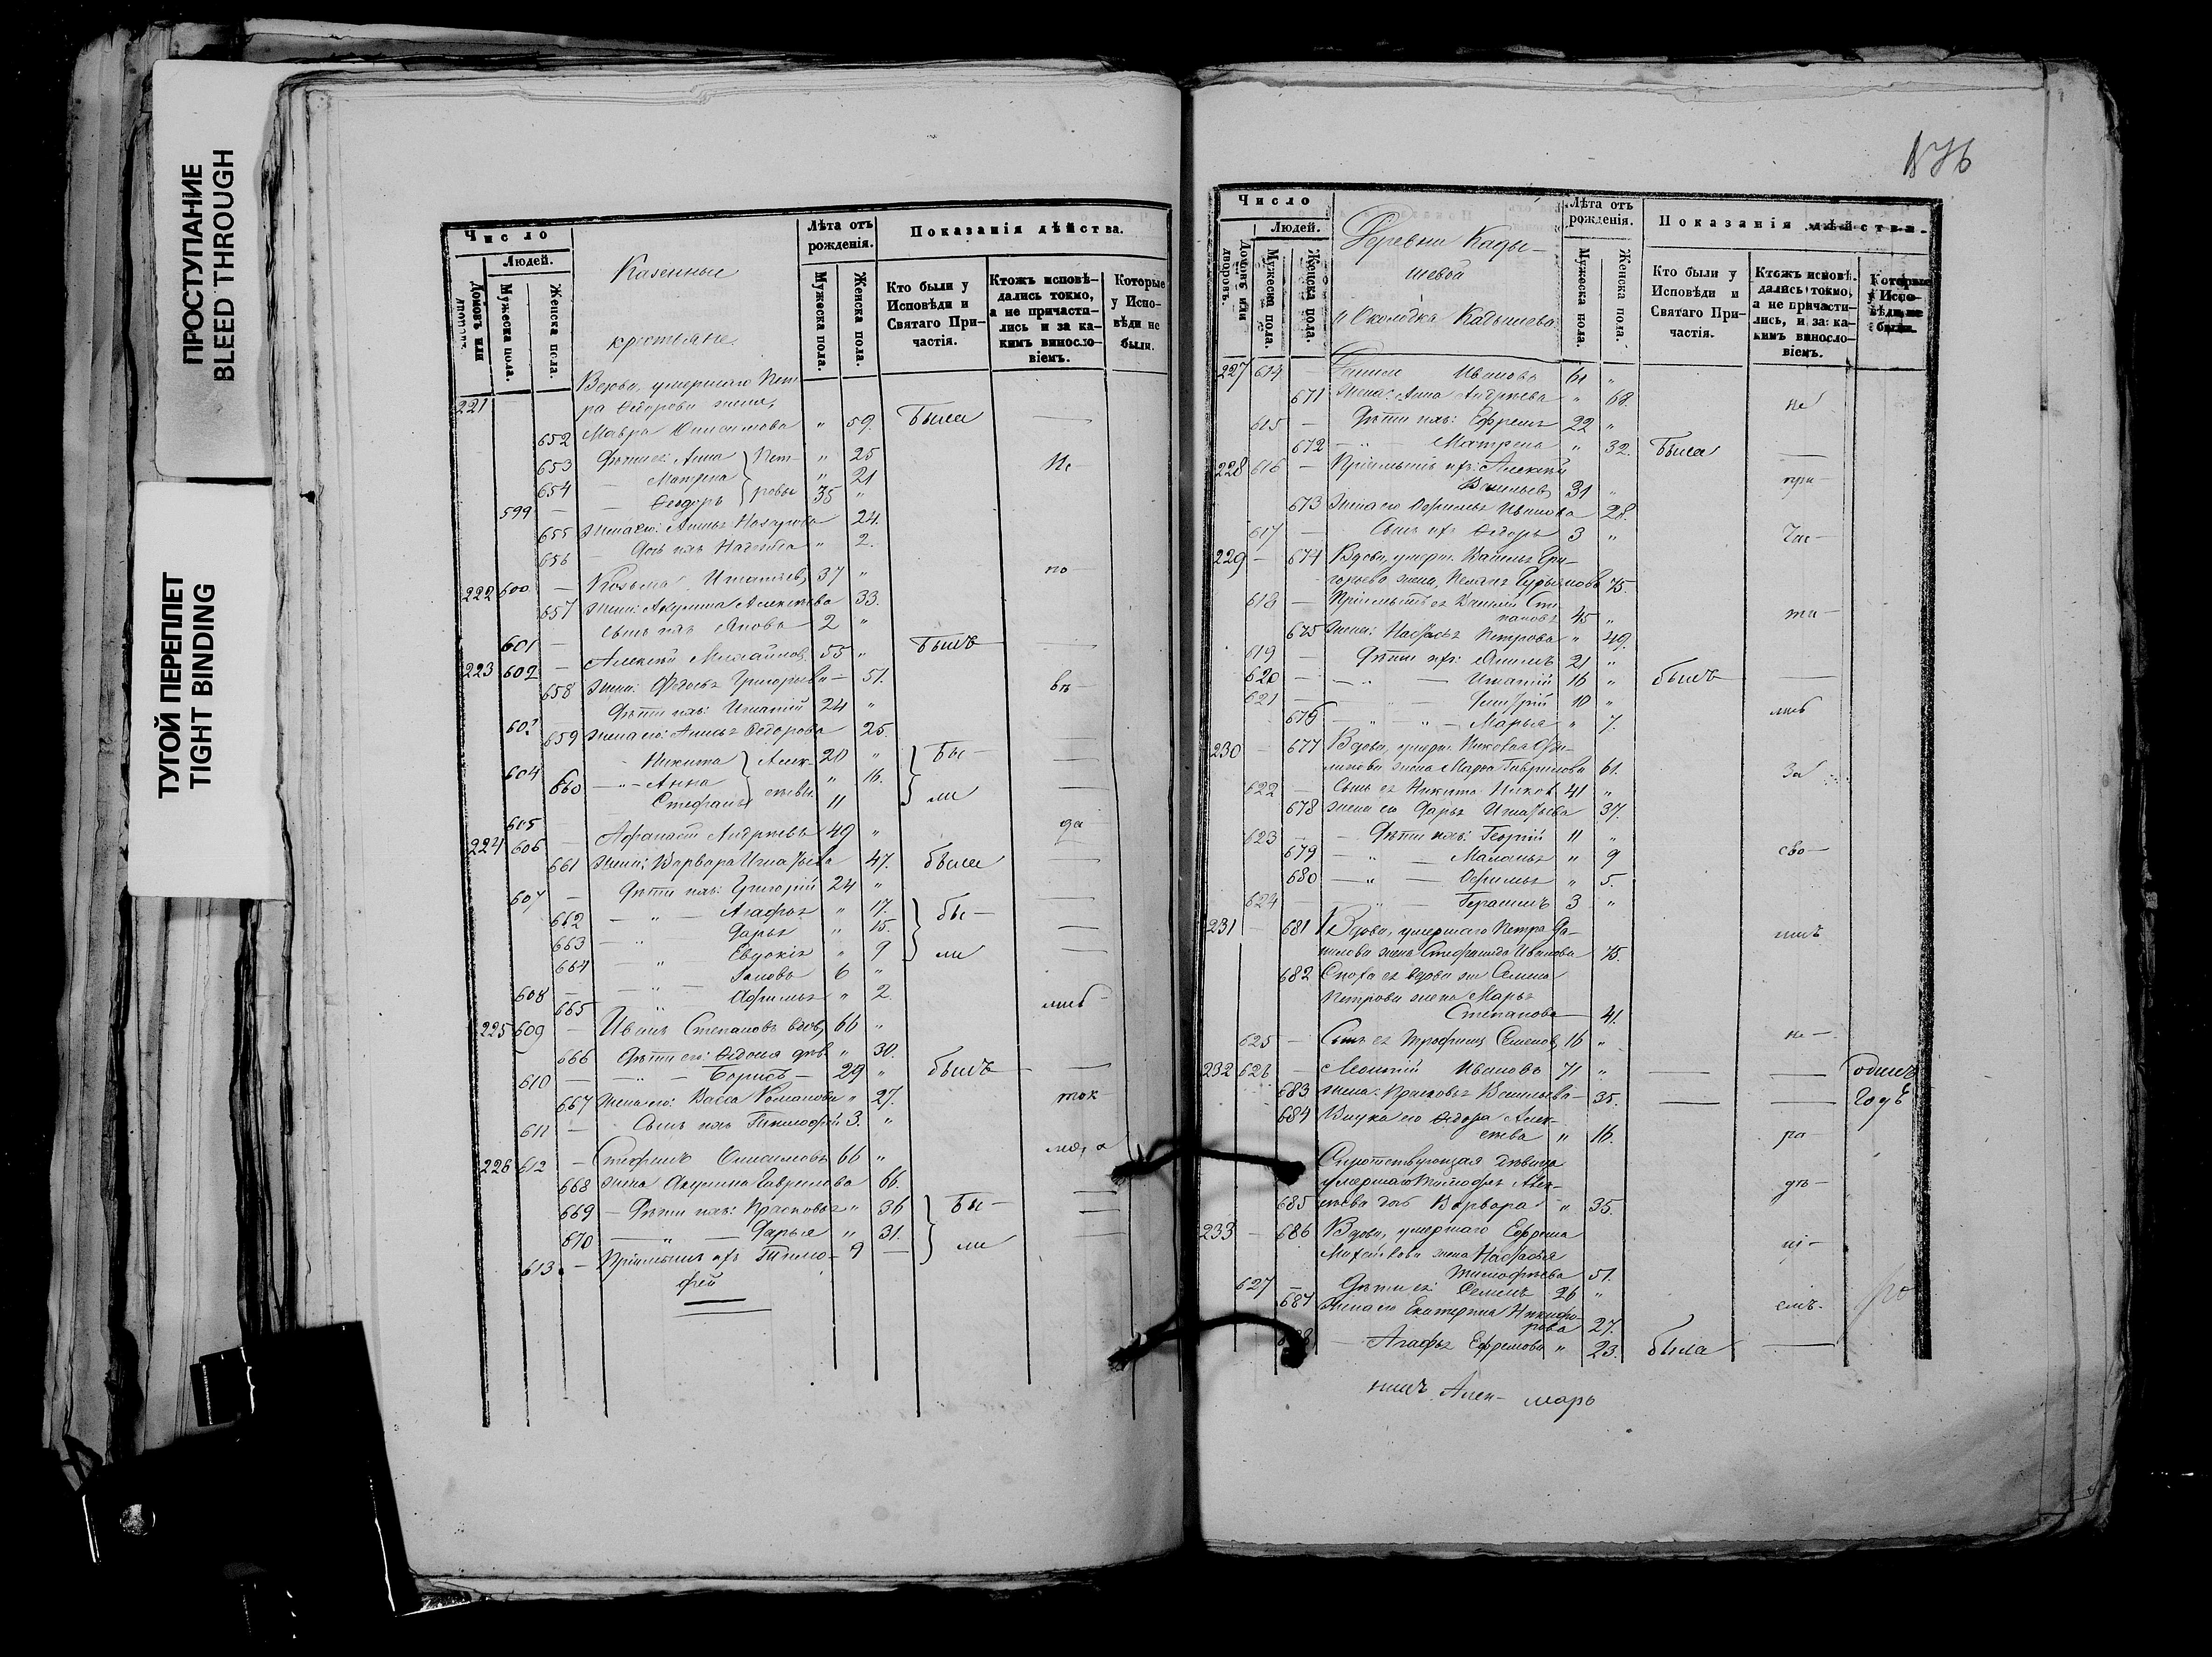 ПРОСТУПАНИЕ
BLEED THROUGH
ТУГОЙ ПЕРЕПЛЕТ
TIGHT BINDING
Число
Людей.
Домовъ или дворовъ.
Мужеска пола.
Женска пола.
Казенные
крестьяне.
Лѣта отъ рожденія.
Мужеска пола.
Женска пола.
Показанія дѣйства.
Кто были у Исповѣди и Святаго Причастія.
Ктожъ исповѣдались токмо, а не причастились и за какимъ винословіемъ.
Которые у Исповѣди не были.
221 Вдова, умершаго Пет-
ра Ѳедорова жена,
652 Мавра Онисимова " 59. Была —
653 Дѣти ея: Анна " 25
Пет-
ровы
Не-
654 — Матрена " 21
599 — — Ѳеодоръ 35 "
655 Жена его: Анна Назарова 24.
656 — Дочь ихъ Надежда " 2.
222 600 — Козьма Игнатьевъ 37 " по-
657 Жена: Акулина Алексѣева 33.
601 — Сынъ ихъ Яковъ 2 "
223 602 — Алексѣй Михайловъ 55 " Былъ —
658 Жена: Ѳедосья Григорьева — 51. вѣ-
603 Дѣти ихъ: Игнатій 24 "
659 Жена его: Анисья Ѳедорова 25.
604 — Никита 20 " Бы- —
Алек-
сѣевы
660 — " — Анна " 16.
605 — Стефанъ 11 ли —
224 606 — Афанасій Андреевъ 49 " да-
661 Жена: Варвара Игнатьева 47. была —
607 — Дѣти ихъ: Григорій 24 "
662 — " — Агафья " 17. бы- —
663 — " Дарья " 15. —
664 — " Евдокія " 9 ли —
608 — — " — Іаковъ 6 "
665 " Афимья " 2. лись
225 609 — Иванъ Степановъ вдовъ 66 "
666 Дѣти его: Ѳедосья дѣв. " 30.
610 — — " — Борисъ — 29 " былъ —
667 Жена его: Васса Романова " 27. ток-
611 — Сынъ ихъ Тимофей 3. "
226 612 — Стефанъ Онисимовъ 66 " мо, а
668 Жена Акулина Гаврилова 66.
669 — Дѣти ихъ: Прасковья " 36 Бы- —
670 — " — Дарья " 31. —
613. — Пріемышъ ихъ Тимо- 9 — ли
фей
176
Число
Людей.
Домовъ или дворовъ.
Мужеска пола.
Женска пола.
Деревни Кады-
шевой
и Околодка Кадышева
Лѣта отъ рожденія.
Мужеска пола.
Женска пола.
Показанія дѣйства.
Кто были у Исповѣди и Святаго Причастія.
Ктожъ исповѣдались токмо, а не причастились, и за какимъ винословіемъ.
Которые у Исповѣди не были.
227 614 — Ивановъ 61 "
671 Жена: Анна Андреева " 68. не
615 — Дѣти ихъ: Ефремъ 22 "
672 — " — Матрена " 32. Была —
228 616 — Пріемышъ ихъ: Алексѣй при-
Васильевъ 31 "
673 Жена его Афимья Иванова 28.
617 — Сынъ ихъ Ѳедоръ 3 " Час-
229 — 674 Вдова, умерш. Гри-
горьева жена, 75.
618 — Пріемышъ ея Василій Сте- ти-
пановъ 45 "
675 Жена: Настасья Петрова " 49.
619 — Дѣти ихъ: 21 "
620 — — " — Игнатій 16 " былъ —
621 — Дмитрій 10 "
676 — " — " — Марья " 7. лись
230 — 677 Вдова, умерш. Николая
жена Марья Гаврилова 61. За
622 — Сынъ ея Никита Никол. 41 "
678 Жена его Дарья Игнатьева 37.
623 — — Дѣти ихъ: Георгій 11 "
679 — " — Маланья " 9 сво-
680 — " — Афимья " 5.
624 — — " — Герасимъ 3 "
231 — 681 Вдова, умершаго Петра Да- имъ
нилова жена Стефанида Иванова 75.
682 Сноха ея вдова же Семена
Петрова жена Марья
Степанова — 41.
625 — Сынъ ея Трофимъ Семеновъ 16 " не-
232 626 — Ивановъ 71 " — — одинъ
683 Жена: Прасковья Васильева — 35. — — годъ
684 Внука его Ѳедора Алек-
сѣева " 16. ра-
дѣвица
умершаго Тимофея Алек- дѣ-
685 сѣева дочь Варвара — " 35.
233 — 686 Вдова, умершаго Ефрема
жена Настасья ні-
Тимофеева 51.
627 — Дѣти ея: Семенъ 26 "
687 Жена его Екатерина Никифо- емъ.
рова 27.
688 — Агафья Ефремова " 23. была —